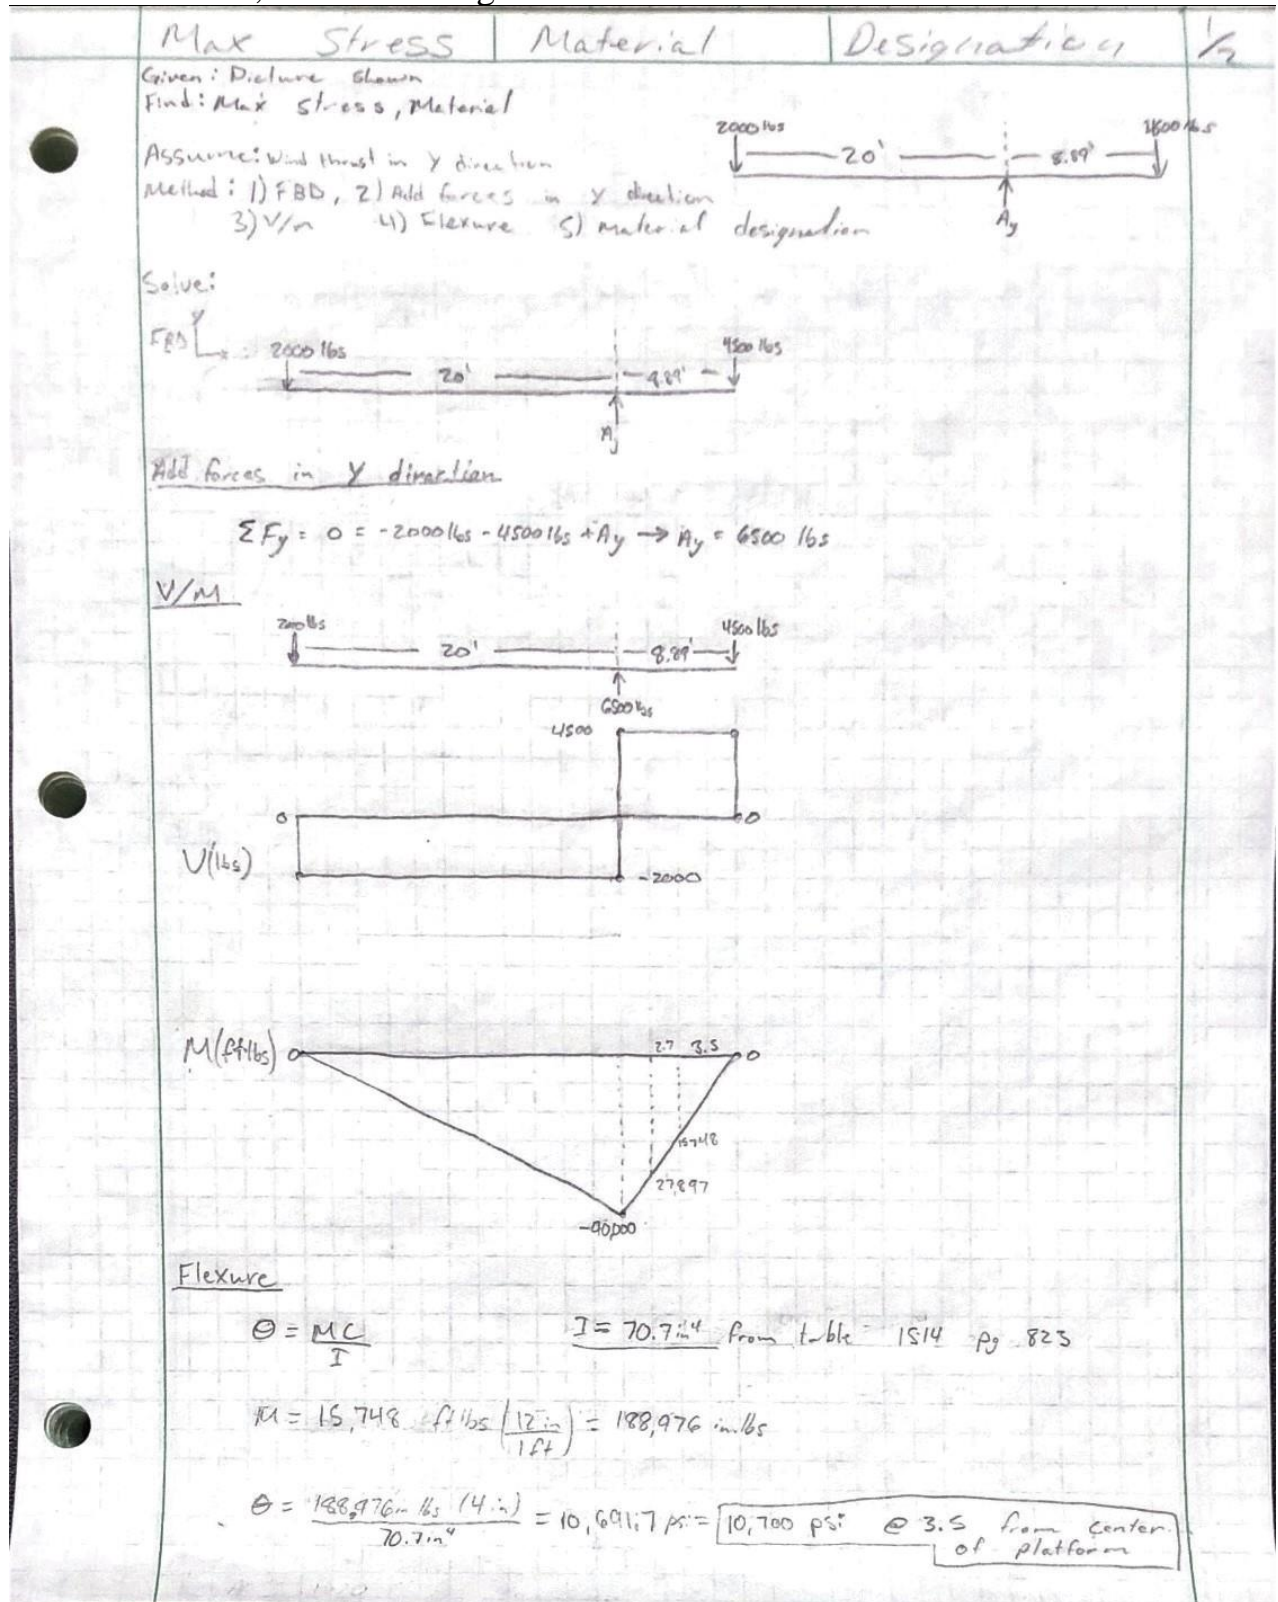 Max Stress | Material | Designation 1/2
Given: Picture shown
Find: Max stress, Material
2000 lbs 4500 lbs
20' 8.89'
Ay
Assume: Wind thrust in Y direction
Method: 1) FBD, 2) Add forces in Y direction
3) V/M 4) Flexure 5) material designation
Solve:
FBD Y x
2000 lbs 4500 lbs
20' 8.89'
Ay
Add forces in Y direction
ΣFy = 0 = -2000 lbs - 4500 lbs + Ay → Ay = 6500 lbs
V/M
2000 lbs 4500 lbs
20' 8.89'
6500 lbs
4500
0 0
V(lbs)
-2000
M(ft lbs) 0 2.7 3.5 0
15748
27,897
-40,000
Flexure
Θ = MC/I I = 70.7 in⁴ from table 1514 pg 823
M = 15,748 ft lbs (12 in/1 ft) = 188,976 in.lbs
Θ = 188,976 in lbs (4 in)/70.7 in⁴ = 10,691.7 psi = 10,700 psi @ 3.5 from center
of platform